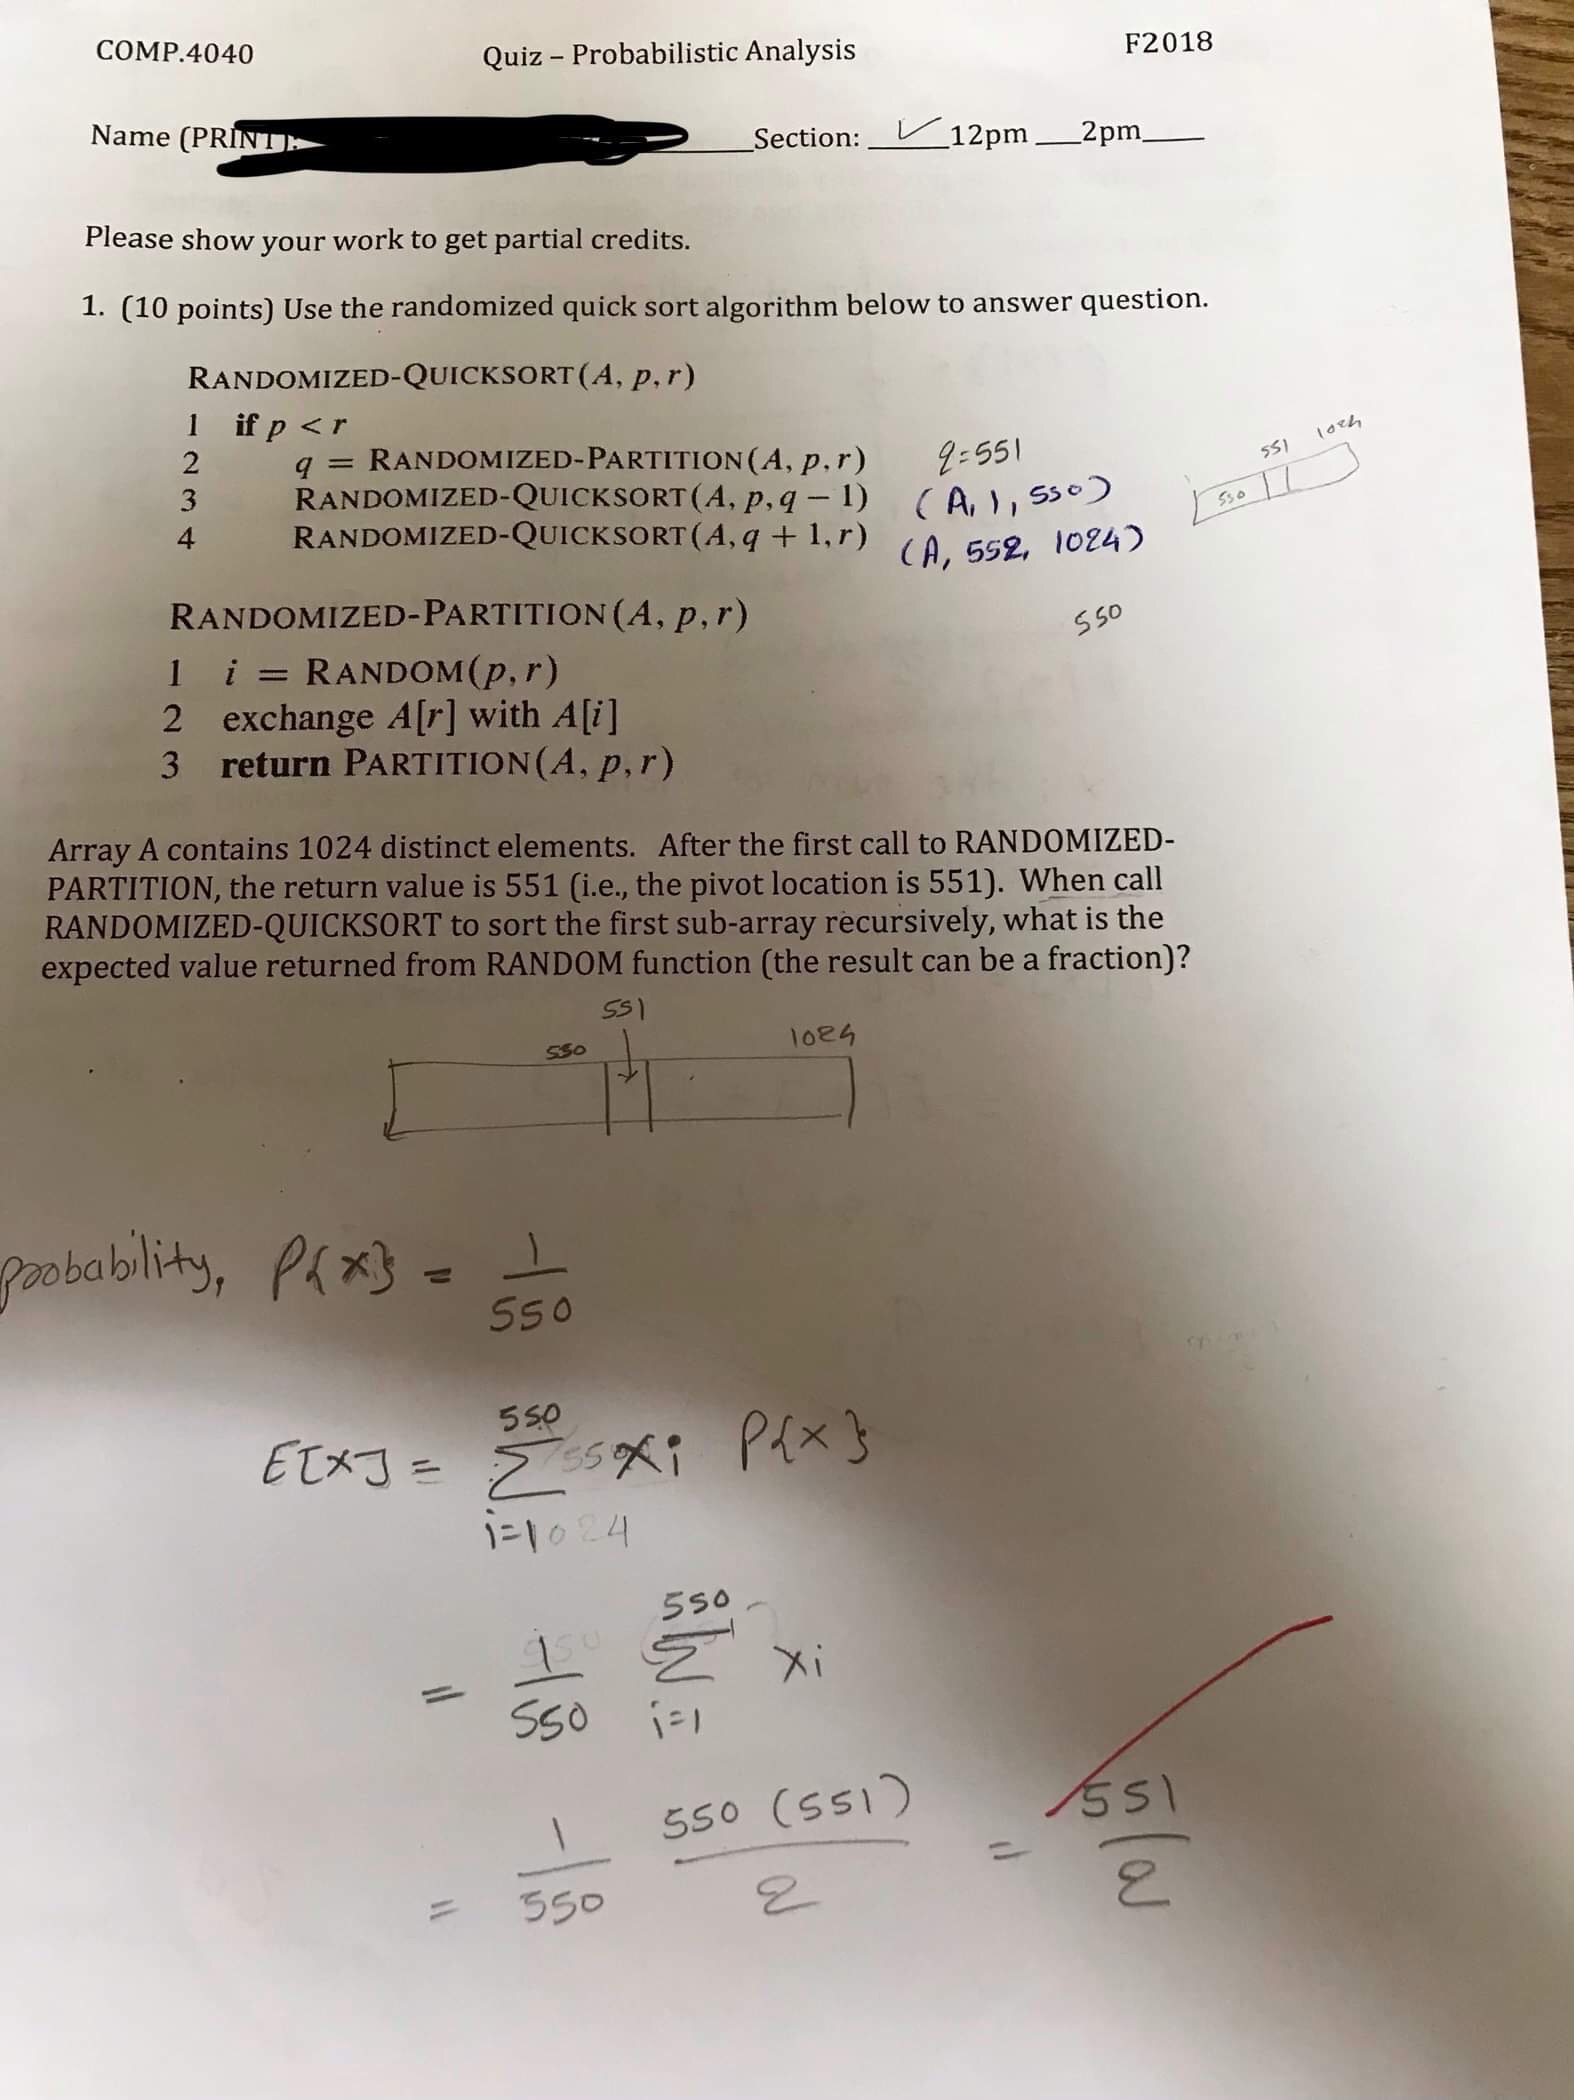 COMP.4040 Quiz – Probabilistic Analysis F2018
Name (PRINT): Section: ✓ 12pm 2pm
Please show your work to get partial credits.
1. (10 points) Use the randomized quick sort algorithm below to answer question.
RANDOMIZED-QUICKSORT(A, p, r)
1 if p < r
2 q = RANDOMIZED-PARTITION(A, p, r) q=551
3 RANDOMIZED-QUICKSORT(A, p, q − 1) (A, 1, 550)
4 RANDOMIZED-QUICKSORT(A, q + 1, r) (A, 552, 1024)
550 551 1024
RANDOMIZED-PARTITION(A, p, r) 550
1 i = RANDOM(p, r)
2 exchange A[r] with A[i]
3 return PARTITION(A, p, r)
Array A contains 1024 distinct elements. After the first call to RANDOMIZED-
PARTITION, the return value is 551 (i.e., the pivot location is 551). When call
RANDOMIZED-QUICKSORT to sort the first sub-array recursively, what is the
expected value returned from RANDOM function (the result can be a fraction)?
551
550 1024
probability, P{x} = 1
550
550
E[X] = Σ xi P{x}
i=1
550
= 1 Σ xi
550 i=1
= 1 550 (551) = 551
550 2 2